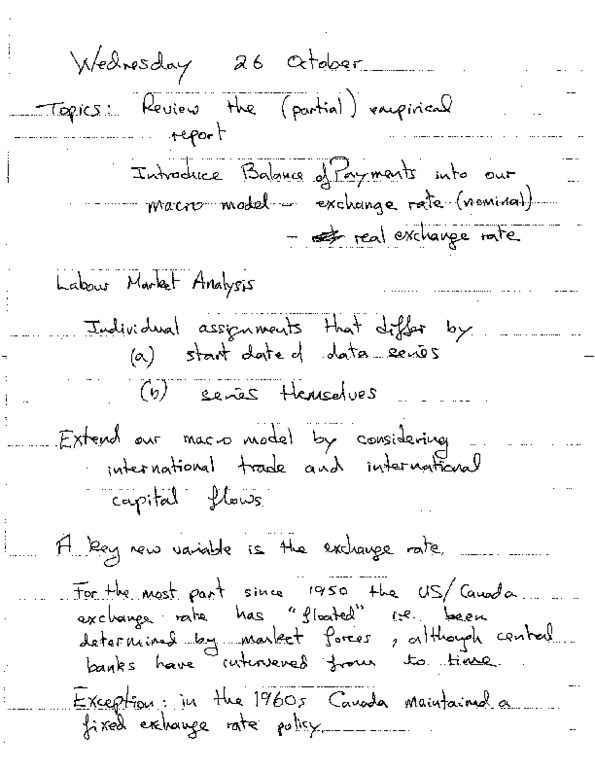 Wednesday 26 October
Topics: Review the (partial) empirical
report
Introduce Balance of Payments into our
macro model - exchange rate (nominal)
- real exchange rate
Labour Market Analysis
Individual assignments that differ by
(a) start date of data series
(b) series themselves
Extend our macro model by considering
international trade and international
capital flows.
A key new variable is the exchange rate.
For the most part since 1950 the US/Canada
exchange rate has "floated" i.e. been
determined by market forces, although central
banks have intervened from to time.
Exception: in the 1960s Canada maintained a
fixed exchange rate policy.